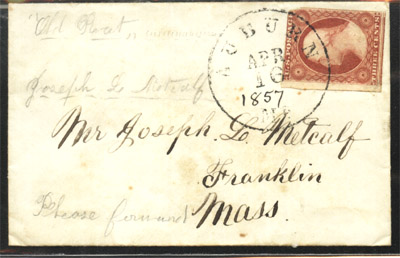 AUBURN
APR
10
1857
THREE CENTS
Joseph L. Metcalf
Mr Joseph L. Metcalf
Franklin
Please forward
Mass.